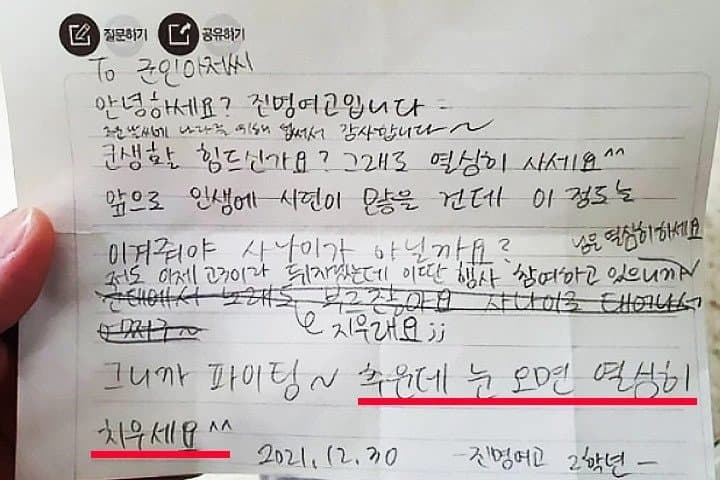 질문하기 공유하기
To 군인아저씨
안녕하세요? 진명여고입니다
추운 날씨에 나라를 위해 힘써서 감사합니다~
군생활 힘드신가요? 그래도 열심히 사세요^^
앞으로 인생에 시련이 많을 건데 이 정도는
이겨줘야 사나이가 아닐까요?
나름 열심히 하세요
저도 이제 고3이라 뒤지겠는데 이딴 행사 참여하고 있으니까~
군대에서 노래도 부르잖아요 사나이로 태어나서
어쩌구~
지우래요;;
그니까 파이팅~ 추운데 눈 오면 열심히
치우세요^^
2021.12.30 -진명여고 2학년-